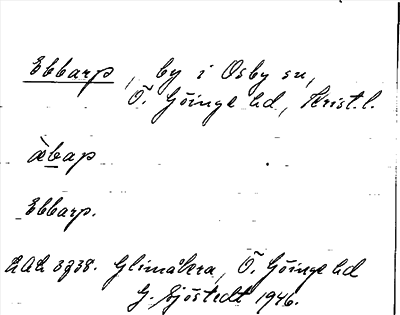 Ebbarp, by i Osby sn,
Ö. Göinge hd, Krist.l.
àbap
Ebbarp.
LAL 3738. Glimåkra, Ö. Göinge hd
G. Sjöstedt 1946.